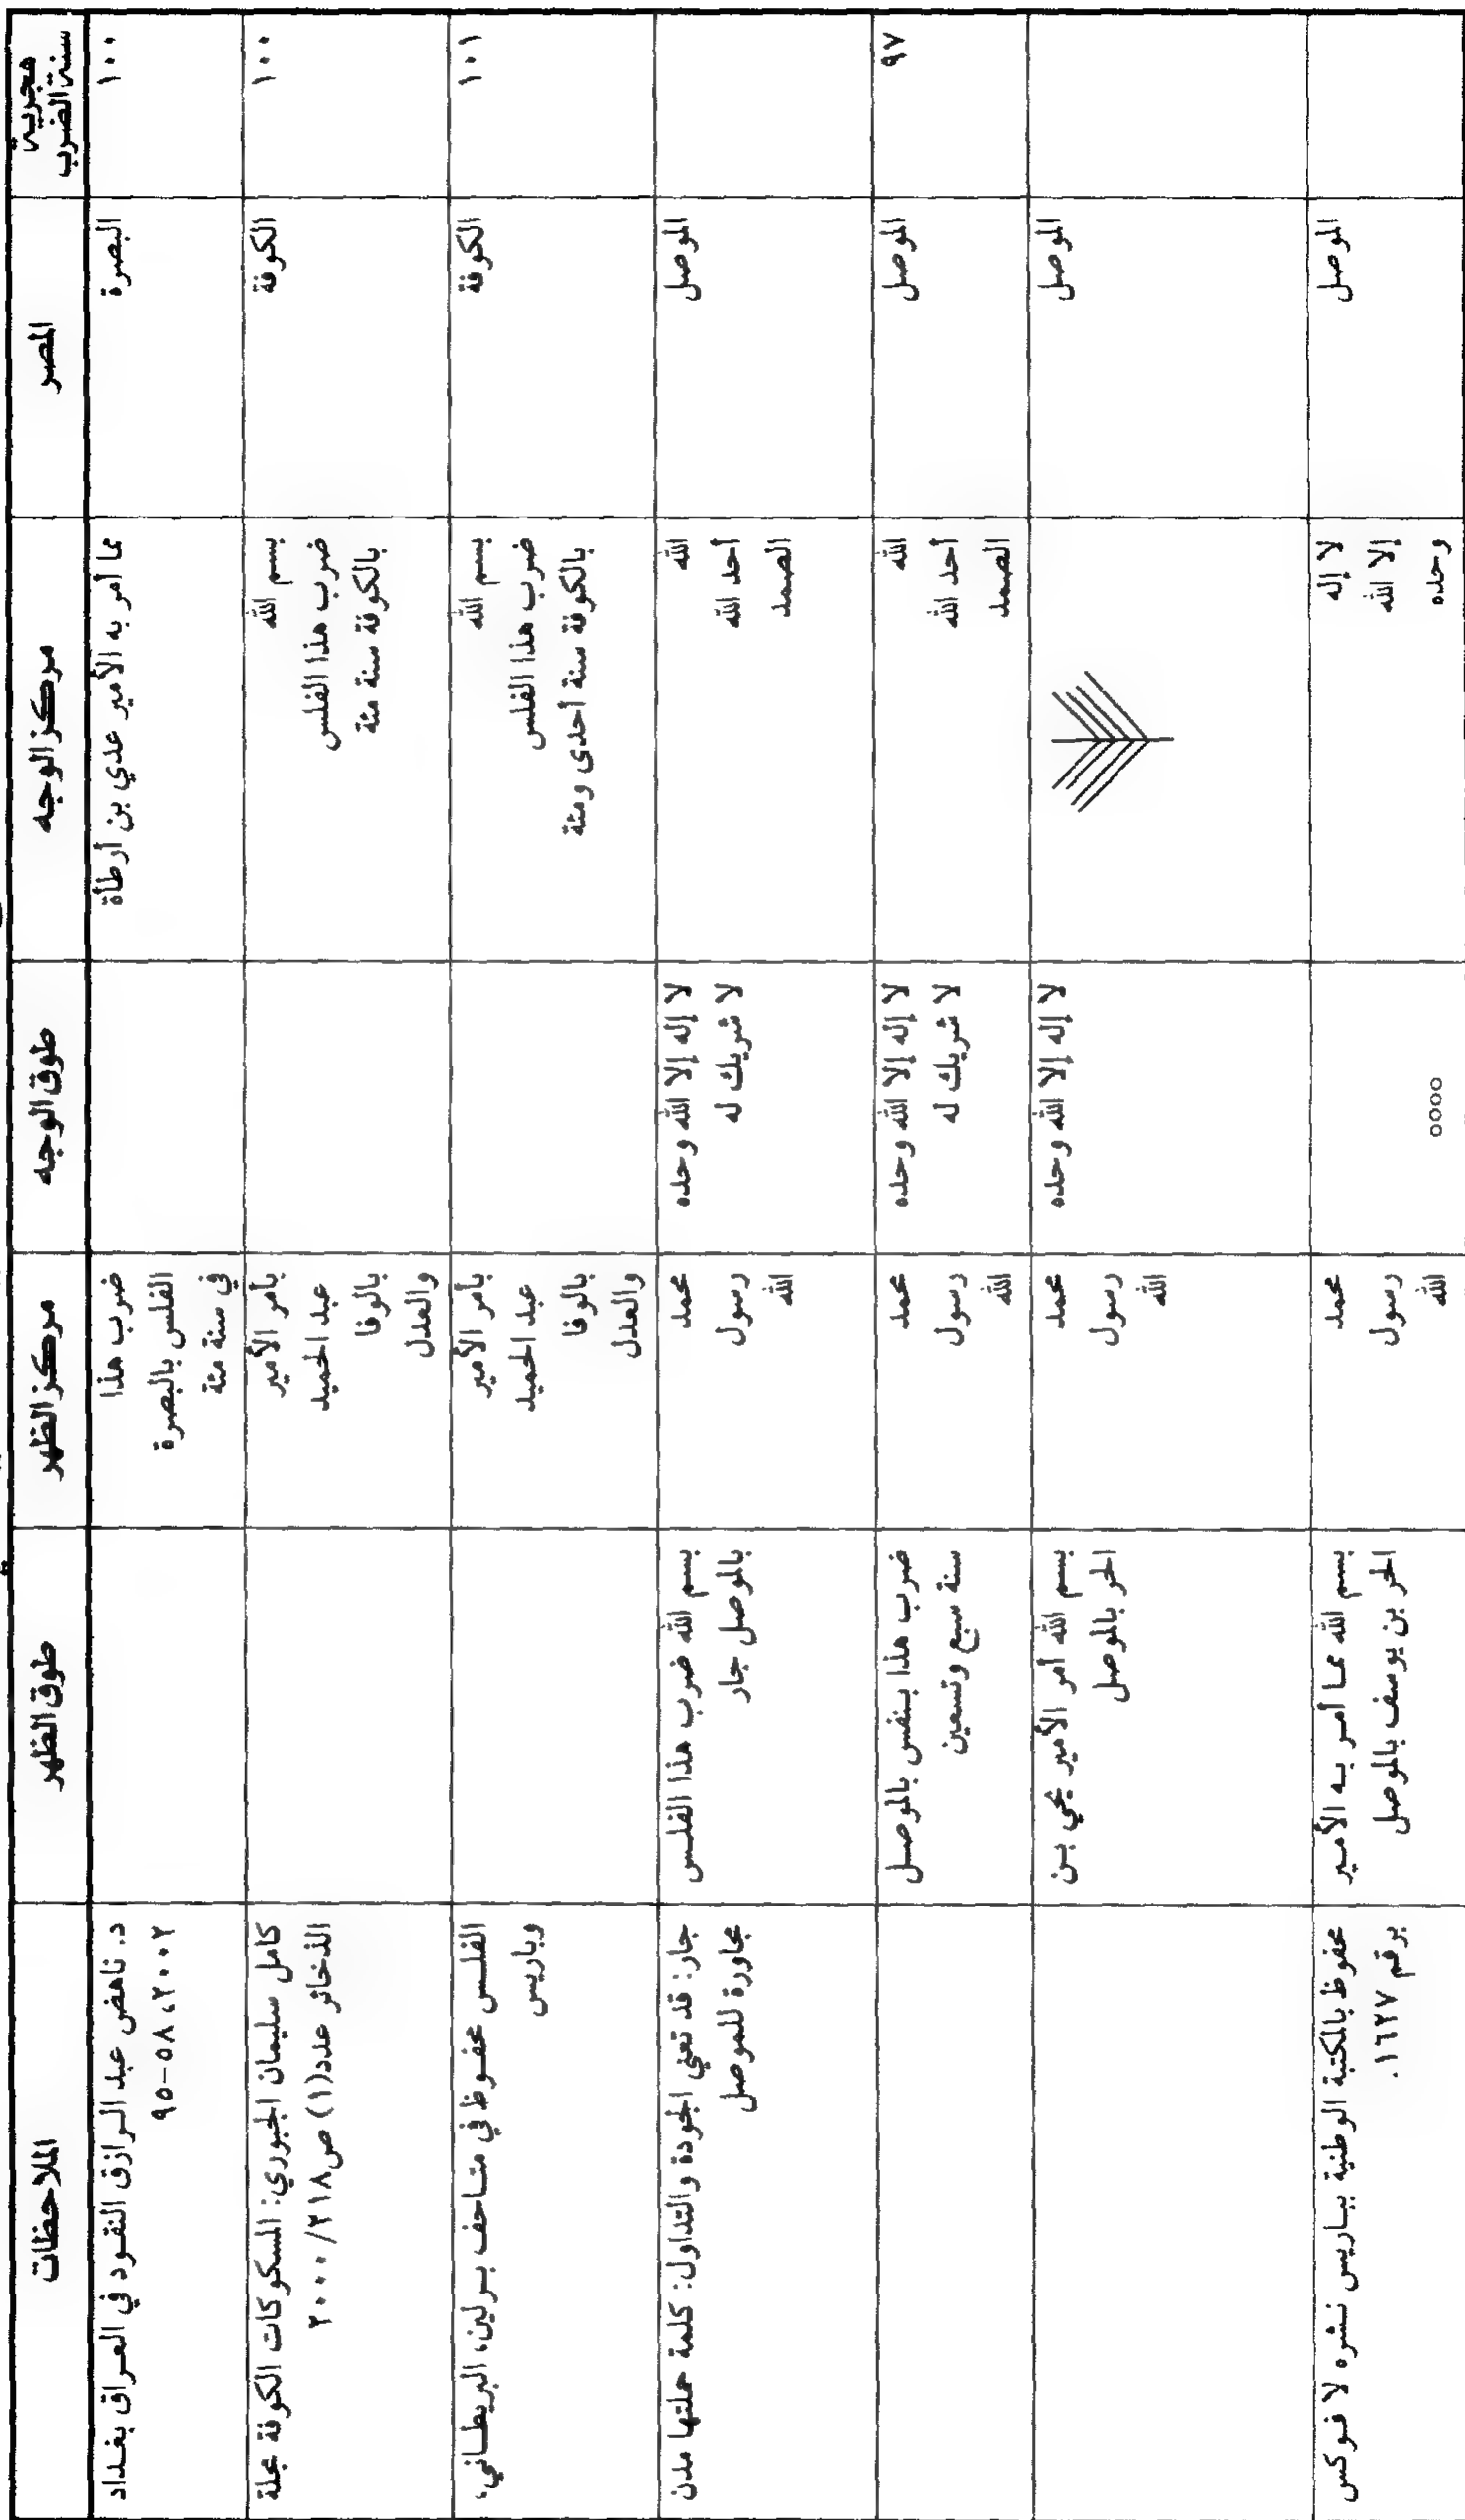 سنة الضرب
هجرية
المصر
مركز الوجه
طوق الوجه
مركز الظهر
طوق الظهر
الملاحظات
١٠٠
البصرة
مما أمر به الأمير عدي بن أرطأة
ضرب هذا
الفلس بالبصرة
في سنة مئة
د. ناهض عبد الرازق النقود في العراق بغداد
٢٠٠٢، ٥٨-٩٥
١٠٠
الكوفة
بسم الله
ضرب هذا الفلس
بالكوفة سنة مئة
بأمر الأمير
عبد الحميد
بالوفا
والعدل
كامل سليمان الجبوري: المسكوكات الكوفة مجلة
الذخائر عدد(١) ص٢١٨/٢٠٠٠
١٠١
الكوفة
بسم الله
ضرب هذا الفلس
بالكوفة سنة أحدى ومئة
بأمر الأمير
عبد الحميد
بالوفا
والعدل
الفلس محفوظ في متاحف برلين، البريطاني،
وباريس
الموصل
الله
أحد الله
الصمد
لا إله إلا الله وحده
لا شريك له
محمد
رسول
الله
بسم الله ضرب هذا الفلس
بالموصل جار
جار: قد تعني الجودة والتداول: كلمة حملتها مدن
مجاورة للموصل
٩٧
الموصل
الله
أحد الله
الصمد
لا إله إلا الله وحده
لا شريك له
محمد
رسول
الله
ضرب هذا بنفس بالموصل
سنة سبع وتسعين
الموصل
لا إله إلا الله وحده
محمد
رسول
الله
بسم الله أمر الأمير يحي بن
الحر بالموصل
الموصل
لا إله
إلا الله
وحده
٥٥٥٥
محمد
رسول
الله
بسم الله مما أمر به الأمير
الحر بن يوسف بالموصل
محفوظ بالمكتبة الوطنية بباريس نشره لا فوكس
برقم ١٦٢٧.